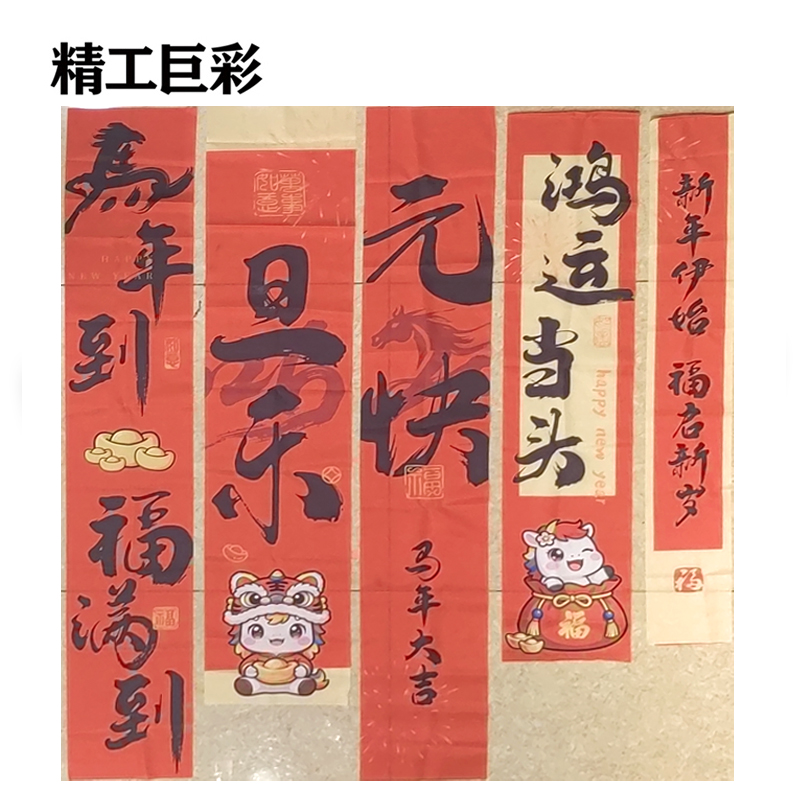 精工巨彩
馬年到
HAPPY
NEW YEAR
福满到
萬事
如意
旦乐
元快
福
马年大吉
鸿运当头
happy new year
福
新年伊始 福启新岁
福